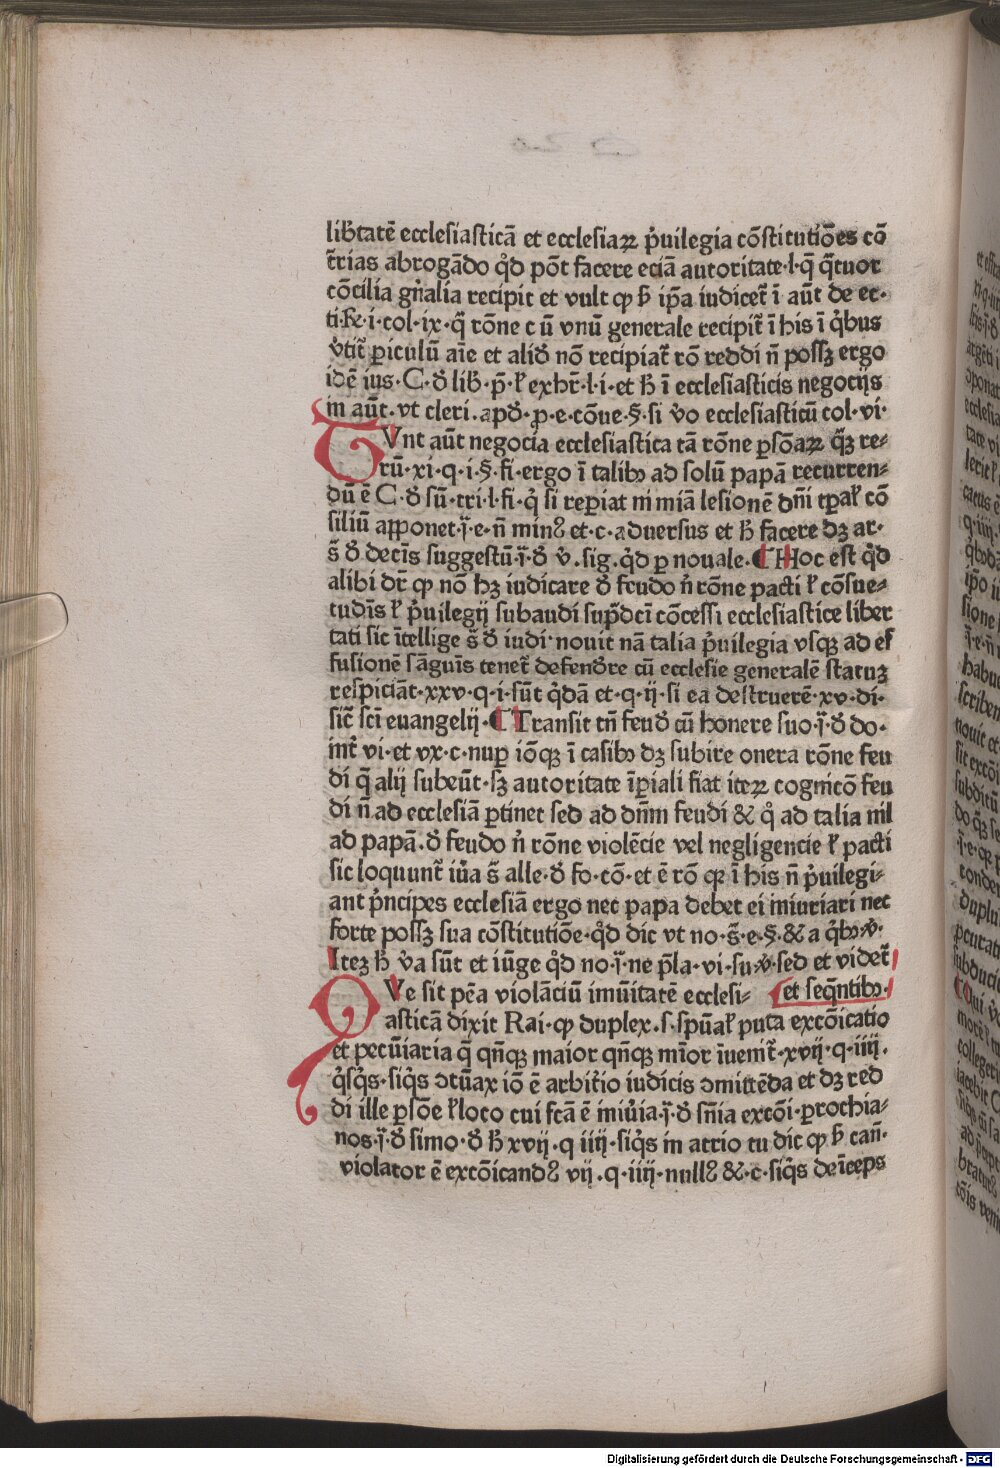 lib̄tatē ecclesiasticā et ecclesiaꝝ p̄uilegia cōstitutiōes cō
t̄rias abrogādo qd̄ pōt facere eciā autoritate·l·q̄ q̄tuor
cōcilia gn̄alia recipit et vult ꝙ h̄ ip̄a iudicet̄ ī aūt de ec·
ti·ſe·i·col·ix·q̄ rōne c ū vnū generale recipit̄ ī his ī qͥbus
v̄tit̄ ꝑiculū aīe et alid̄ nō recipiat̄ rō reddi n̄ possꝫ ergo
idē ius·C·d̄ lib̄·p̄·ł exhr̄·l·i·et h̄ ī ecclesiasticis negocijs
in aūt·vt cleri·apd̄·ꝓ·e·cōue·§·si v̄o ecclesiasticū col·vi·
Vnt aūt negocia ecclesiastica tā rōne ꝑsōaꝝ qͣꝫ re-
rū·xi·q·i·§·fi·ergo ī talibꝫ ad solū papā recurren-
dū ē C·d̄ sū·tri·l·fi·qͥ si reꝑiat nimiā lesionē dn̄i tꝑał cō
siliū apponet·j̄·e·n̄ minꝰ et·c·aduersus et h̄ facere dꝫ ar·
s̄ d̄ decīs suggestū·j̄·d̄ v̄·sig·qd̄ ꝑ nouale·¶ Hoc est qd̄
alibi dr̄ ꝙ nō hꝫ iudicare d̄ feudo n̄ rōne pacti ł cōsue-
tudīs ł p̄uilegij subaudi sup̄dcī cōcessi ecclesiastice liber
tati sic ītellige s̄ d̄ iudi·nouit nā talia p̄uilegia vsqꝫ ad ef
fusionē sāguīs tenet̄ defend̄re cū ecclesie generalē statuꝫ
respiciāt·xxv·q·i·sūt qͥdā et·q·ij·si ea destruerē·xv·di·
sic̄ sc̄i euangelij·¶ Transit tn̄ feud̄ cū honere suo·j̄·d̄ do·
int̄ vi·et vx·c·nuꝑ iōqꝫ ī casibꝫ dꝫ subire onera rōne feu
di q̄ alij subeūt·sꝫ autoritate īꝑiali fiat iteꝝ cognicō feu
di n̄ ad ecclesiā ꝑtinet sed ad dn̄m feudi & qͦ ad talia nil
ad papā·d̄ feudo n̄ rōne violēcie vel negligencie ł pacti
sic loquunt̄ iūa s̄ alle·d̄ fo·cō·et ē rō qꝫ ī his n̄ p̄uilegi-
ant p̄ncipes ecclesiā ergo nec papa debet ei iniuriari nec
forte possꝫ sua cōstitutiōe·qd̄ dic vt no·s̄·e·§·& a qͥbꝫ·v̄·
Iteꝫ h̄ v̄a sūt et iūge qd̄ no·j̄·ne p̄la·vi·su·v̄·sed et videt̄
Ve sit pēa violāciū imūitatē ecclesi- et seqn̄tibꝫ·
asticā dixit Rai·ꝙ duplex·s·spūał puta excōicatio
et pecūiaria q̄ qn̄qꝫ maior qn̄qꝫ mīor īuenit̄·xvij·q·iiij·
qͥsqͥs·siqͥs ɔtūax iō ē arbitͥio iudicis ɔmittēda et dꝫ red
di ille ꝑsōe ł loco cui fcā ē iniūia·j̄·d̄ sn̄ia excōi·ꝑrochia-
nos·j̄·d̄ simo·d̄ h̄ xvij·q iiij·siqͥs in atrio tu dic ꝙ h̄ can̄·
violator ē excōicandꝰ vij·q·iiij·nullꝰ &·c·siqͥs deīceps
Digitalisierung gefördert durch die Deutsche Forschungsgemeinschaft - DFG